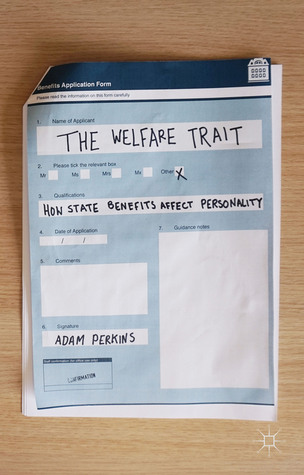 Benefits Application Form
Please read the information on this form carefully
1. Name of Applicant
THE WELFARE TRAIT
2. Please tick the relevant box
Mr Ms Mrs Mx Other X
3. Qualifications
HOW STATE BENEFITS AFFECT PERSONALITY
4. Date of Application
/ /
5. Comments
6. Signature
ADAM PERKINS
7. Guidance notes